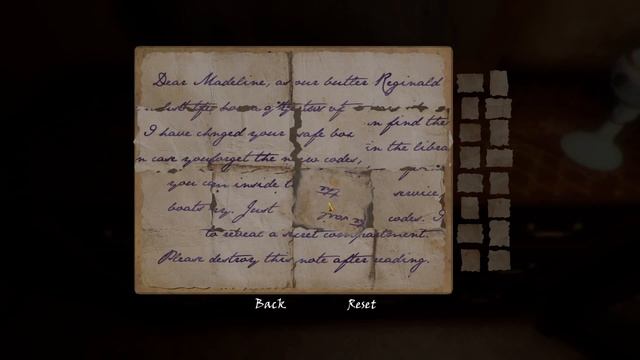 Dear Madeline, as our butler Reginald
I have chnged your safe box
n find the
in the libra
n case youforget the n w codes,
you can inside t
service,
boats ry. Just
codes. I
to reveal a secret compartment.
Please destroy this note after reading.
Back Reset